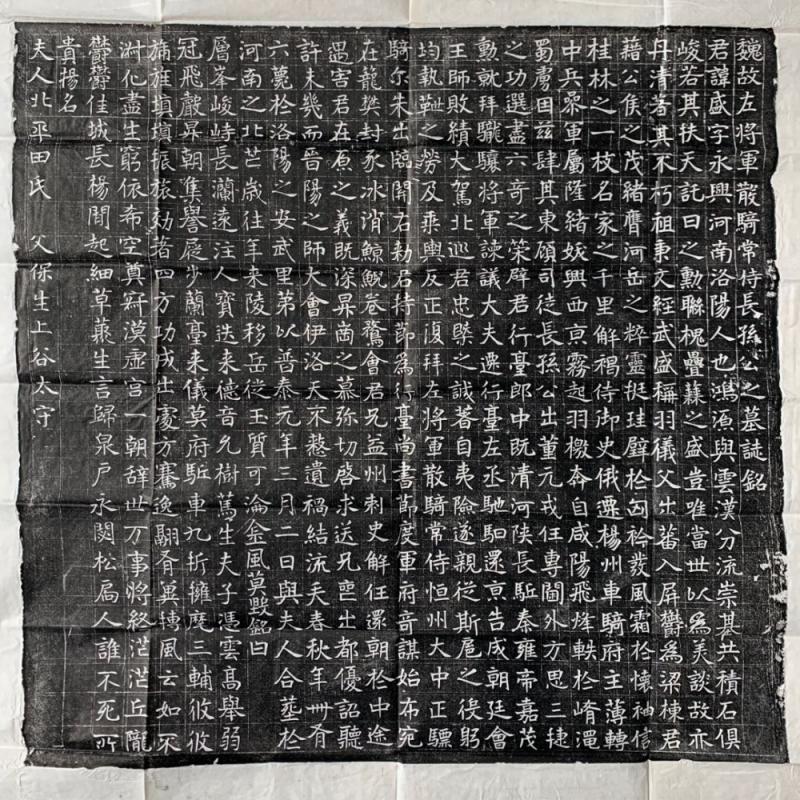 魏故左將軍散騎常侍長孫公之墓誌銘
君諱盛字永興河南洛陽人也鴻源與雲漢分流崇基共積石俱
峻若其扶天託日之勳聯槐疊蕀之盛豈唯當世以為美談故亦
丹清者其不朽祖東文經武盛稱羽儀父出蕃入屏鬱為梁棟君
藉公侯之茂緒膺河岳之粹靈挺珪璧於匈衿發風霜於懷袖信
桂林之一枝名家之千里解褐侍御史俄遷楊州車騎府主薄轉
中兵叅軍屬隆緒妭興西京霧起羽檄奔自咸陽飛烽軼於崤澠
蜀虜田茲肆其東顧司徒長孫公出董元戎任專閫外方思三捷
之功選盡六奇之策辟君行臺郎中既清河陝長駈秦雍帝嘉茂
勳就拜驪驤將軍諫議大夫遷行臺左丞馳馹還京告成朝廷會
王師敗績大駕北巡君忠槩之誠著自夷險遂親從斯扈之後躬
均執靮之勞及乘輿反正復拜左將軍散騎常侍恒州大中正驃
騎尒朱出牧開右勅君持節為行臺尚書節度軍府奇謀始布宛
在龍樊封豕冰消鯨鯢卷鶩會君兄益州刺史解任還朝於中途
遇害君在原之義既深昇崗之慕弥切啓求送兄喪出都優詔聽
許未幾而晉陽之師大會伊洛天不憗遺禍結流矢春秋年卌有
六薨於洛陽之安武里第以普泰元年三月二日與夫人合塟於
河南之北芒歲往年来陵移岳從玉質可淪金風莫毀銘曰
層峯峻峙長瀾遠注人寶迭来德音允樹篤生夫子憑雲高舉弱
冠飛聲昇朝集譽屣步蘭臺来儀莫府駈車九折擁麾三輔攸攸
旆旌填填振旅効著四方功成出處方騫逸翮齊冀摶風云如不
淑化盡生窮依希空奠寂漠虛宮一朝辞世万事將終茫茫丘隴
鬱鬱佳城長楊鬪起細草藂生言歸泉戶永閟松扃人誰不死所
貴揚名
夫人北平田氏 父保生上谷太守